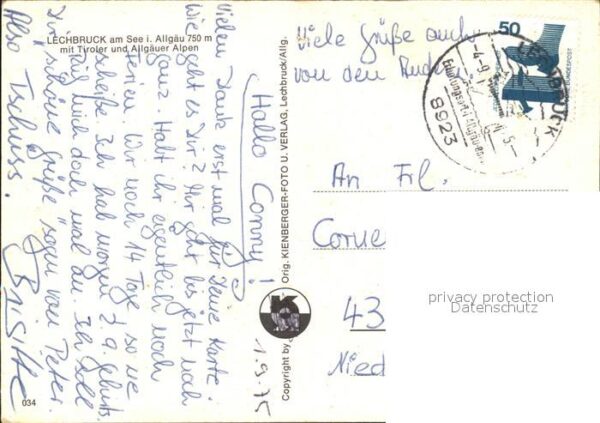 LECHBRUCK am See i. Allgäu 750 m
mit Tiroler und Allgäuer Alpen
Hallo Conny!
Vielen Dank erst mal für Deine Karte.
Wie geht es Dir? Mir geht bis jetzt noch
ganz. Habt ihr eigentlich noch
Ferien. Wir noch 14 Tage so ne
scheiße. Ich hab morgen
ruf mich doch mal an. Ich soll
Dir "schöne Grüße" sagen von Peter.
Also Tschuss.
Brigitte
1.9.75
034
Copyright by
Orig. KIENBERGER-FOTO U. VERLAG, Lechbruck/Allg.
Viele Grüße auch
von den
50
DEUTSCHE BUNDESPOST
LECHBRUCK
8923
An Frl.
Corne
43
Nied
privacy protection
Datenschutz